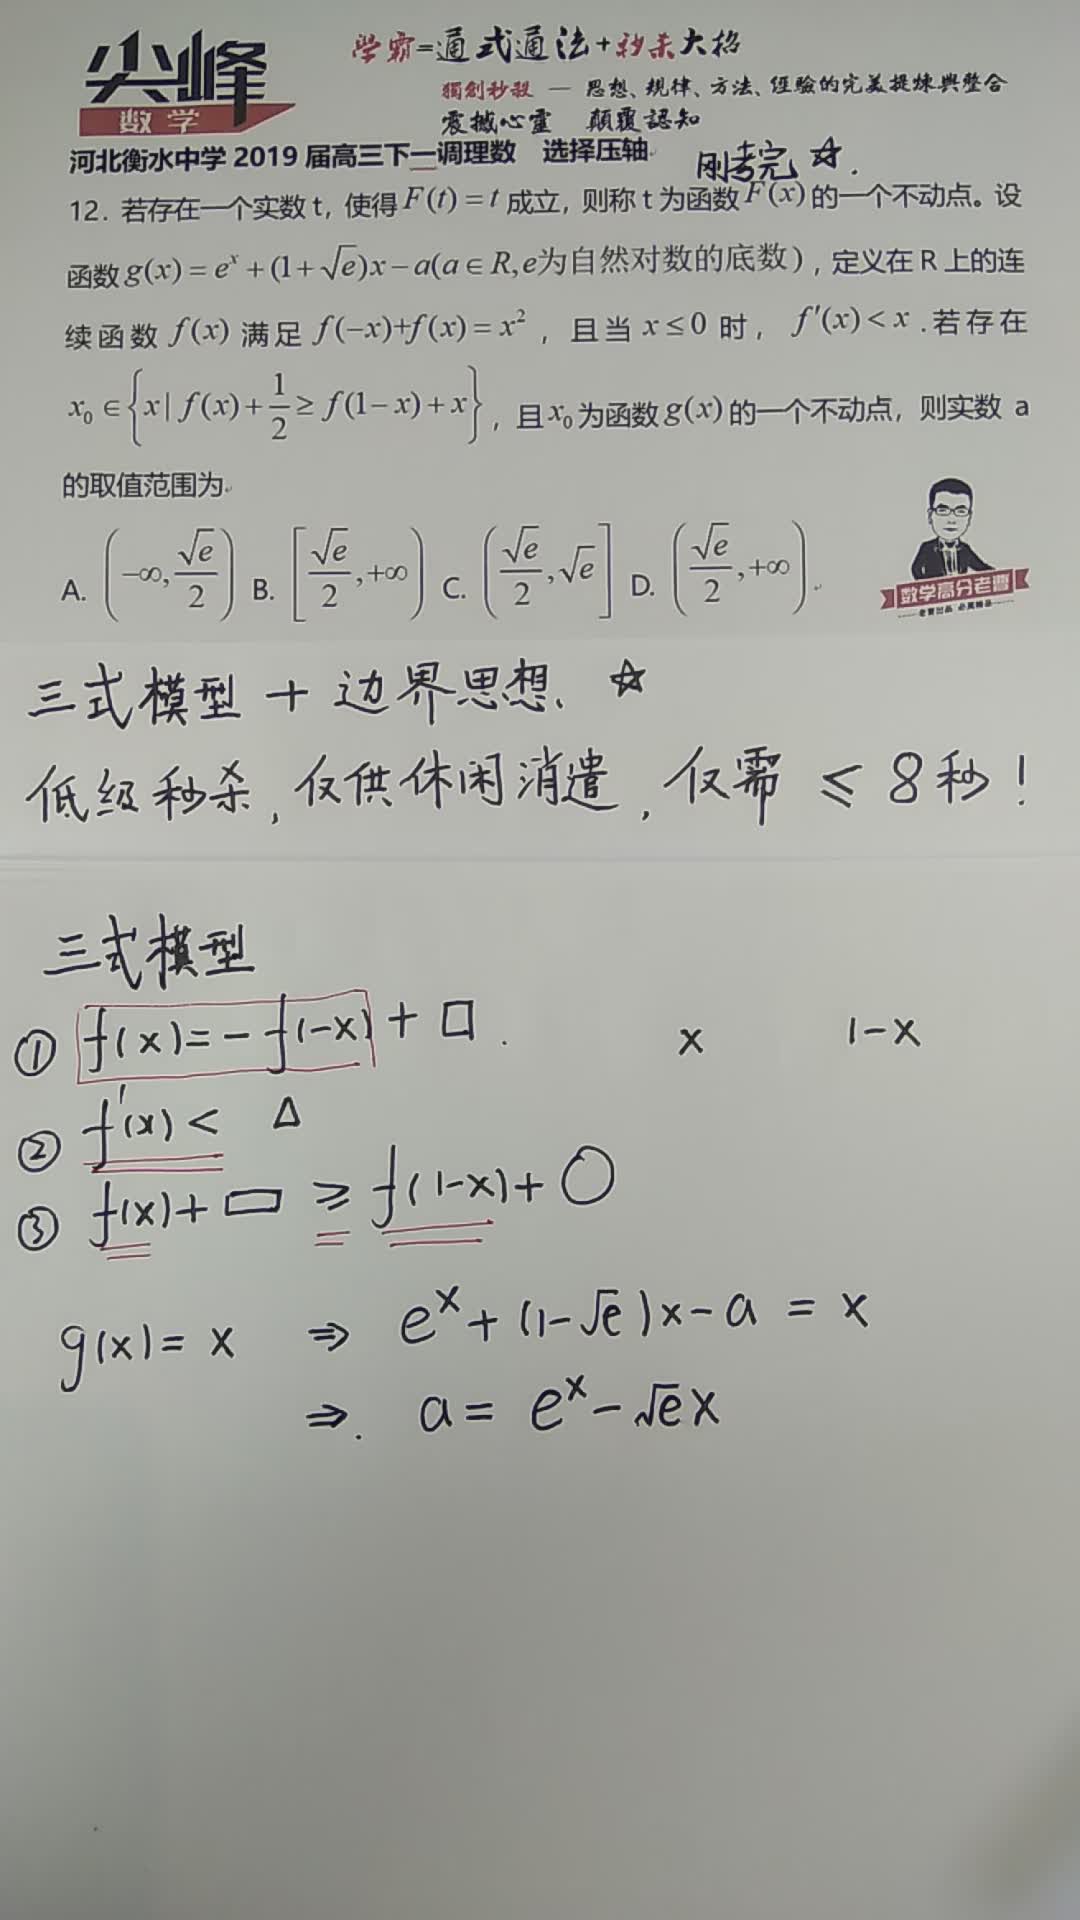 尖峰
数学
学霸=通式通法+秒杀大招
獨創秒殺 — 思想、規律、方法、經驗的完美提煉與整合
震撼心靈 顛覆認知
河北衡水中学 2019 届高三下一调理数 选择压轴
刚考完 ☆.
12. 若存在一个实数 t, 使得 F(t) = t 成立, 则称 t 为函数 F(x) 的一个不动点。设
函数 g(x) = e^x + (1+√e)x − a(a ∈ R, e为自然对数的底数), 定义在 R 上的连
续函数 f(x) 满足 f(−x)+f(x) = x², 且当 x ≤ 0 时, f′(x) < x .若存在
x₀ ∈ {x | f(x) + 1/2 ≥ f(1−x) + x}, 且 x₀ 为函数 g(x) 的一个不动点, 则实数 a
的取值范围为
A. (−∞, √e/2) B. [√e/2, +∞) C. (√e/2, √e] D. (√e/2, +∞)
数学高分老曹
老曹出品 必属精品
三式模型 + 边界思想、☆
低级秒杀, 仅供休闲消遣, 仅需 ≤ 8秒!
三式模型
① f(x) = − f(−x) + □ . x 1−x
② f′(x) < △
③ f(x) + □ ≥ f(1−x) + ○
g(x) = x ⇒ e^x + (1−√e)x − a = x
⇒. a = e^x − √e x